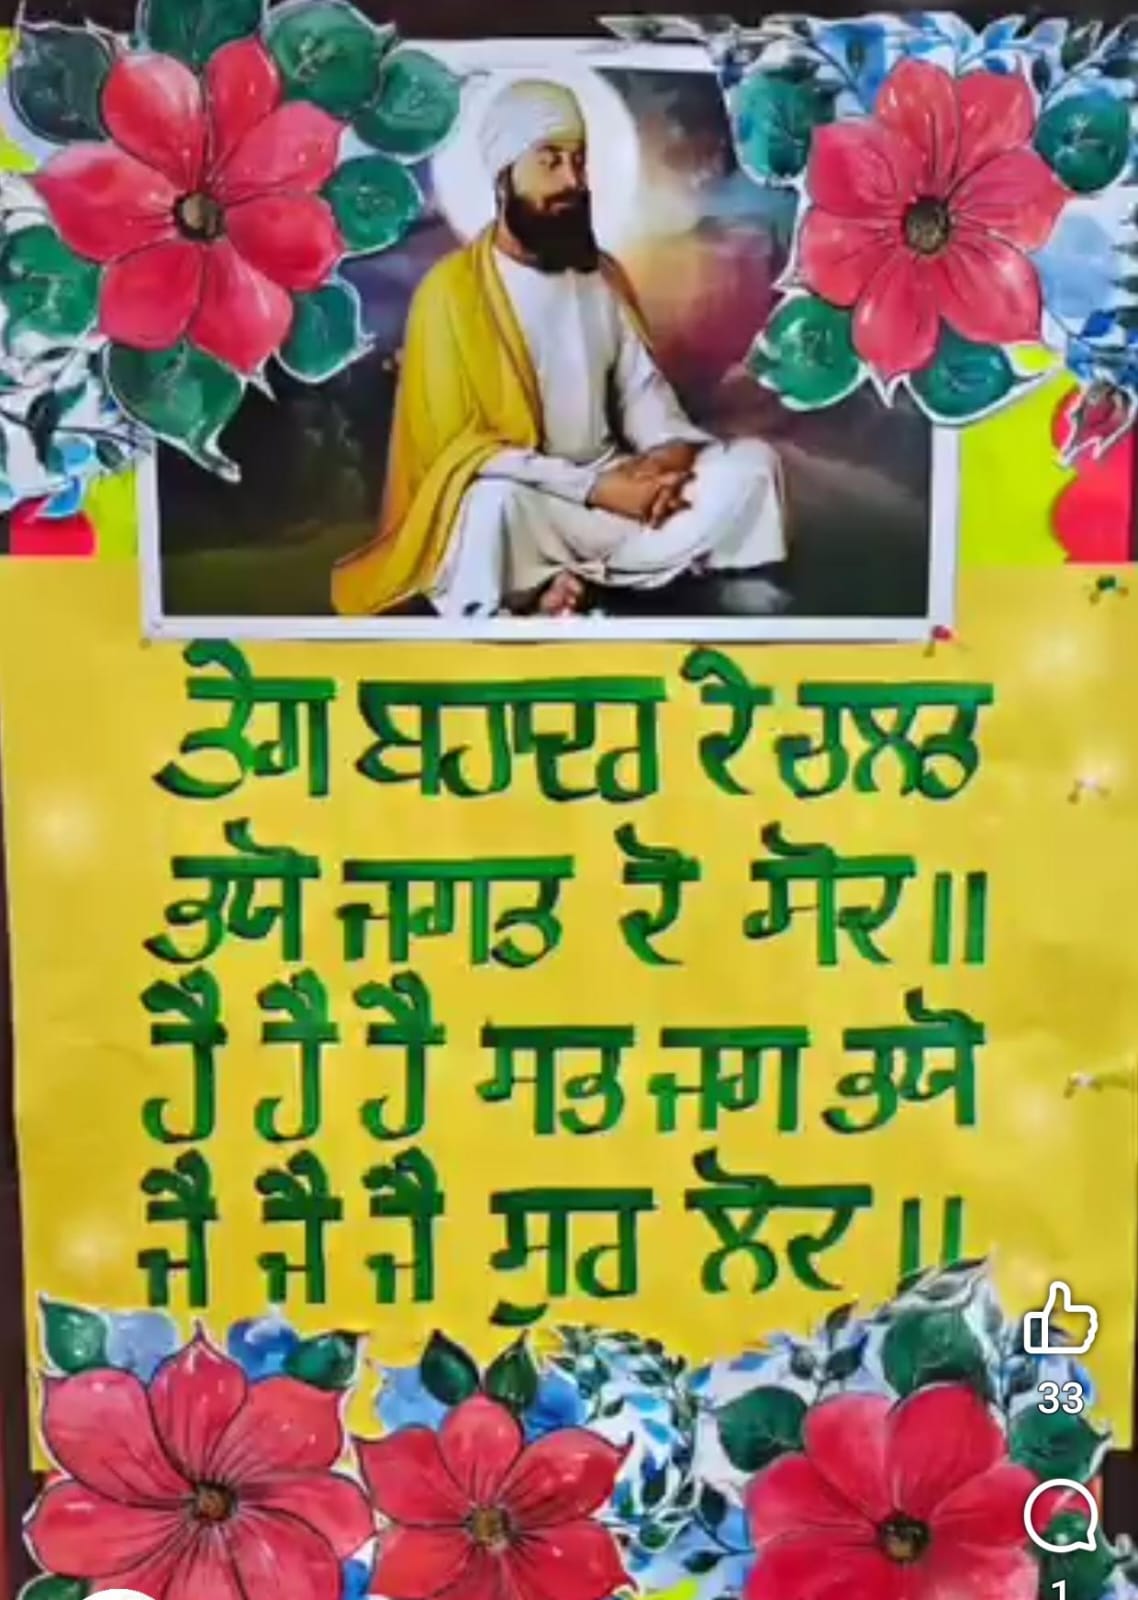 ਤੇਗ ਬਹਾਦਰ ਕੇ ਚਲਤ
ਭਯੋ ਜਗਤ ਕੋ ਸੋਕ॥
ਹੈ ਹੈ ਹੈ ਸਭ ਜਗ ਭਯੋ
ਜੈ ਜੈ ਜੈ ਸੁਰ ਲੋਕ ॥
33
1